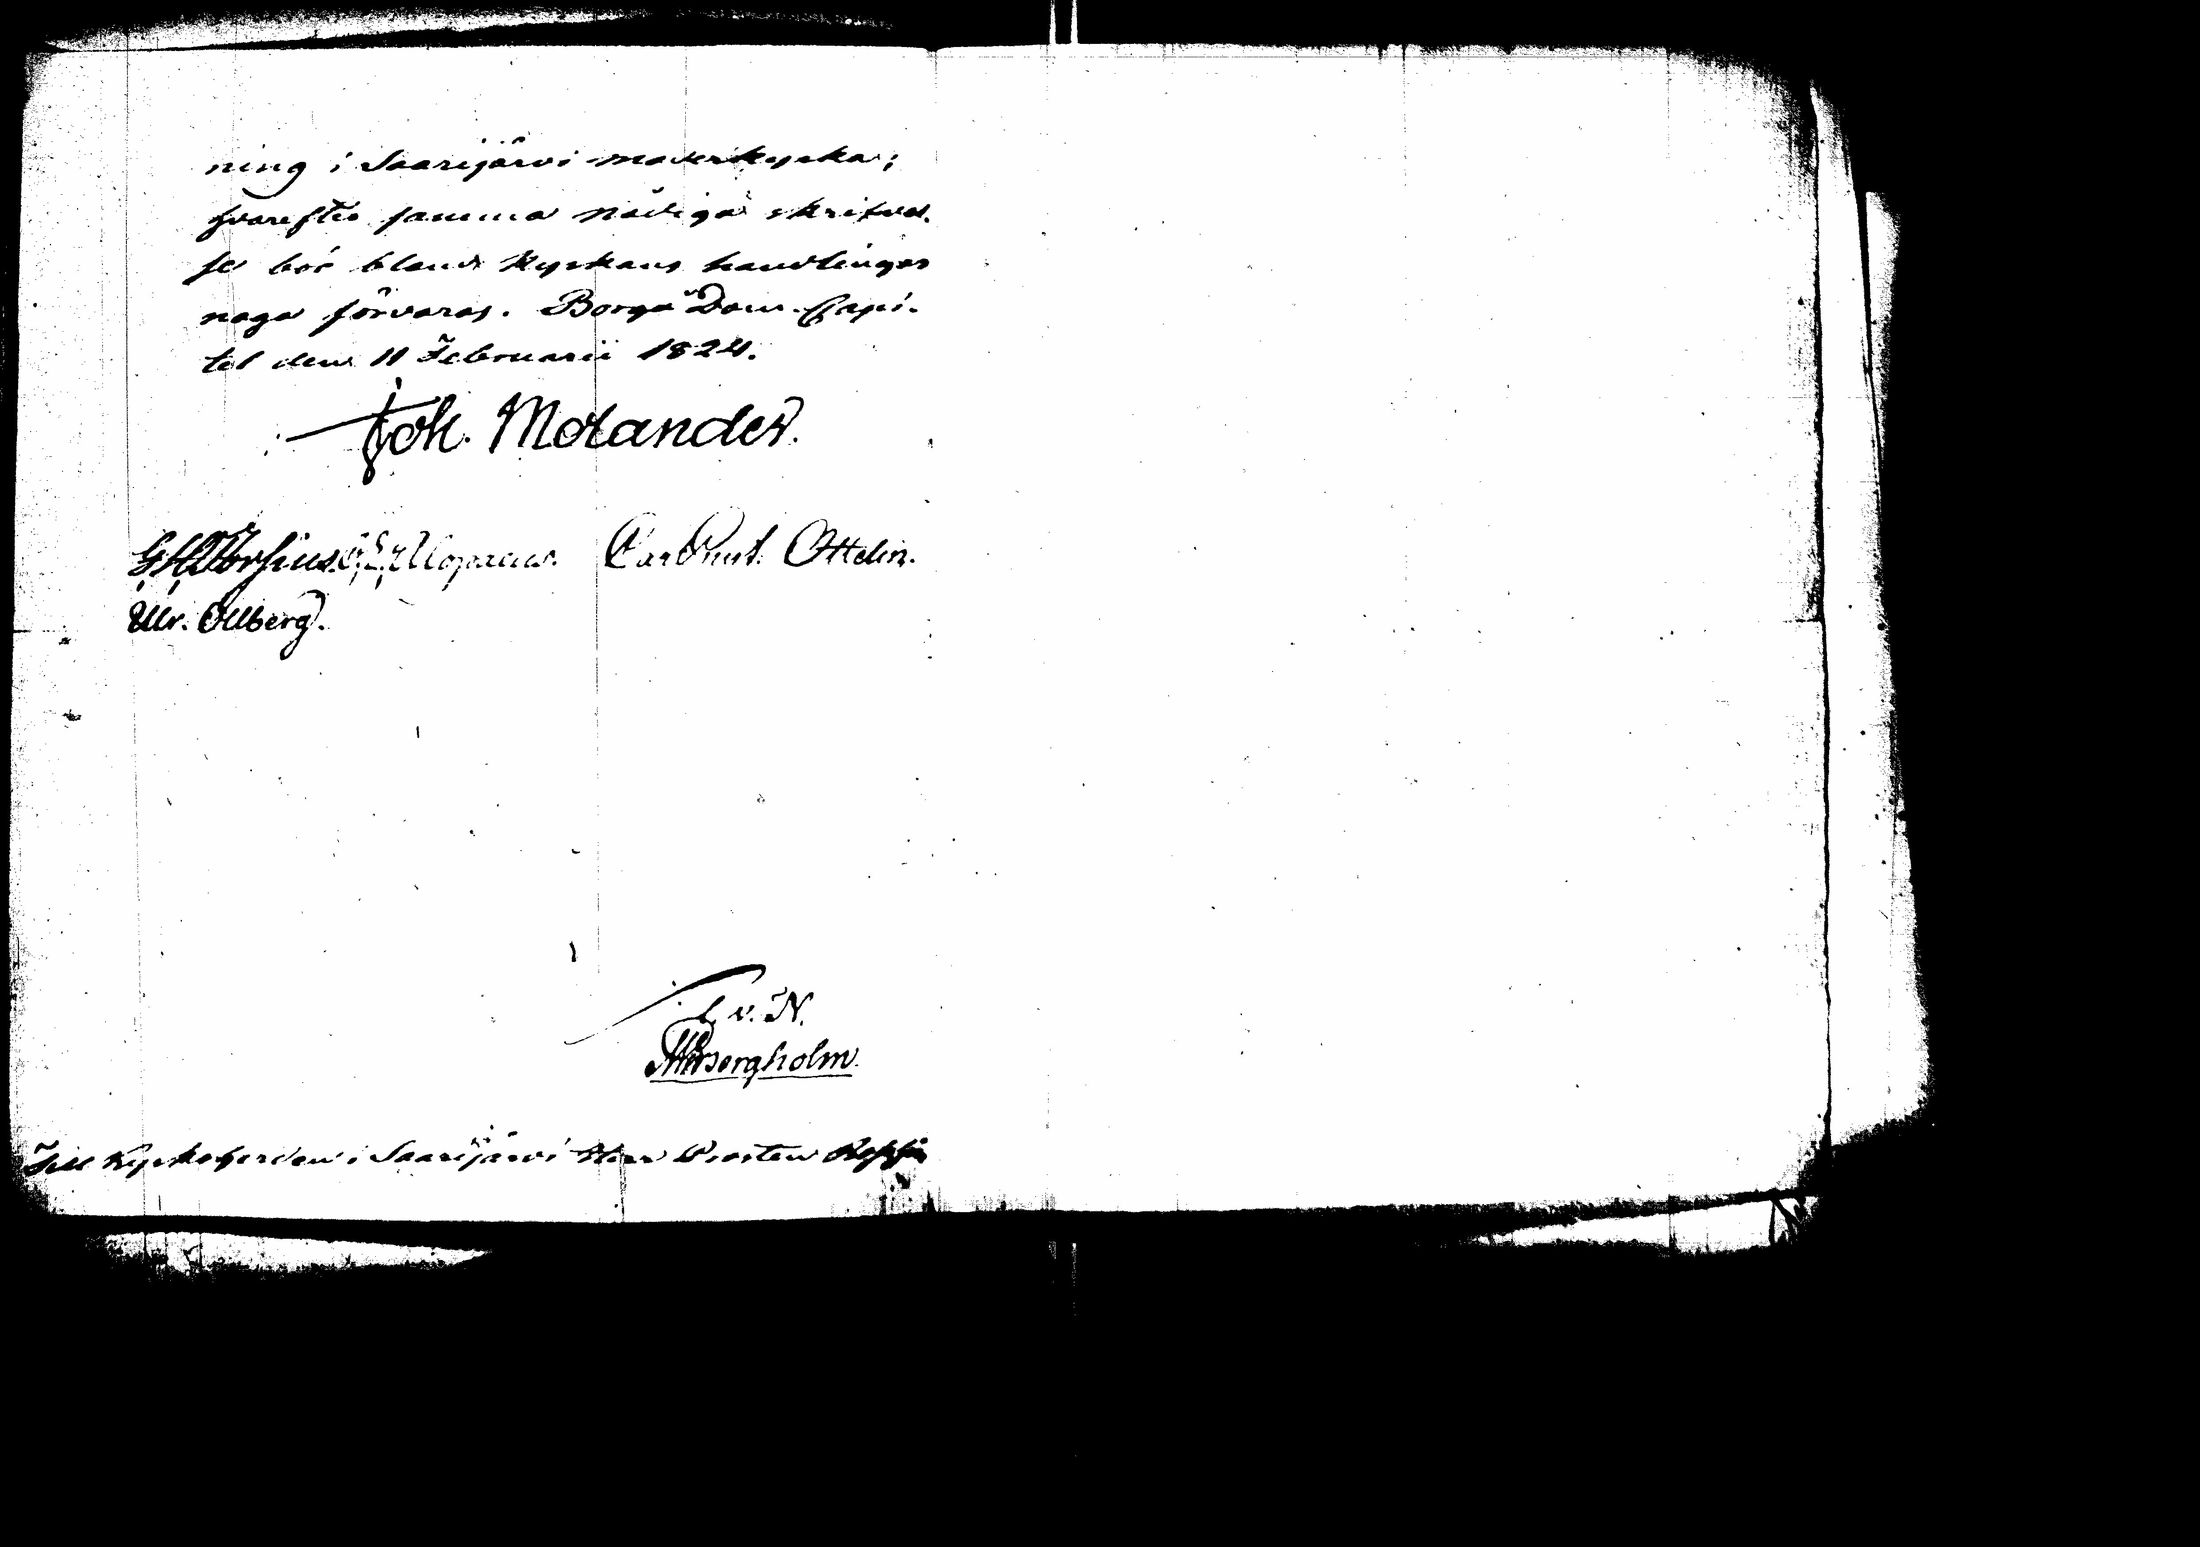 ning i Saarijärvi moderkyrka;
hvarefter samma nådiga skrifvel-
se bör bland Kyrkans handlingar
noga förvaras. Borgå Dom-Capi-
tel den 11 Februarii 1824.
Joh. Molander.
Carl Ottelin.
Ulr. Ollberg.
v. N.
Bergholm.
Till Kyrkoherden i Saarijärvi Herr Prosten